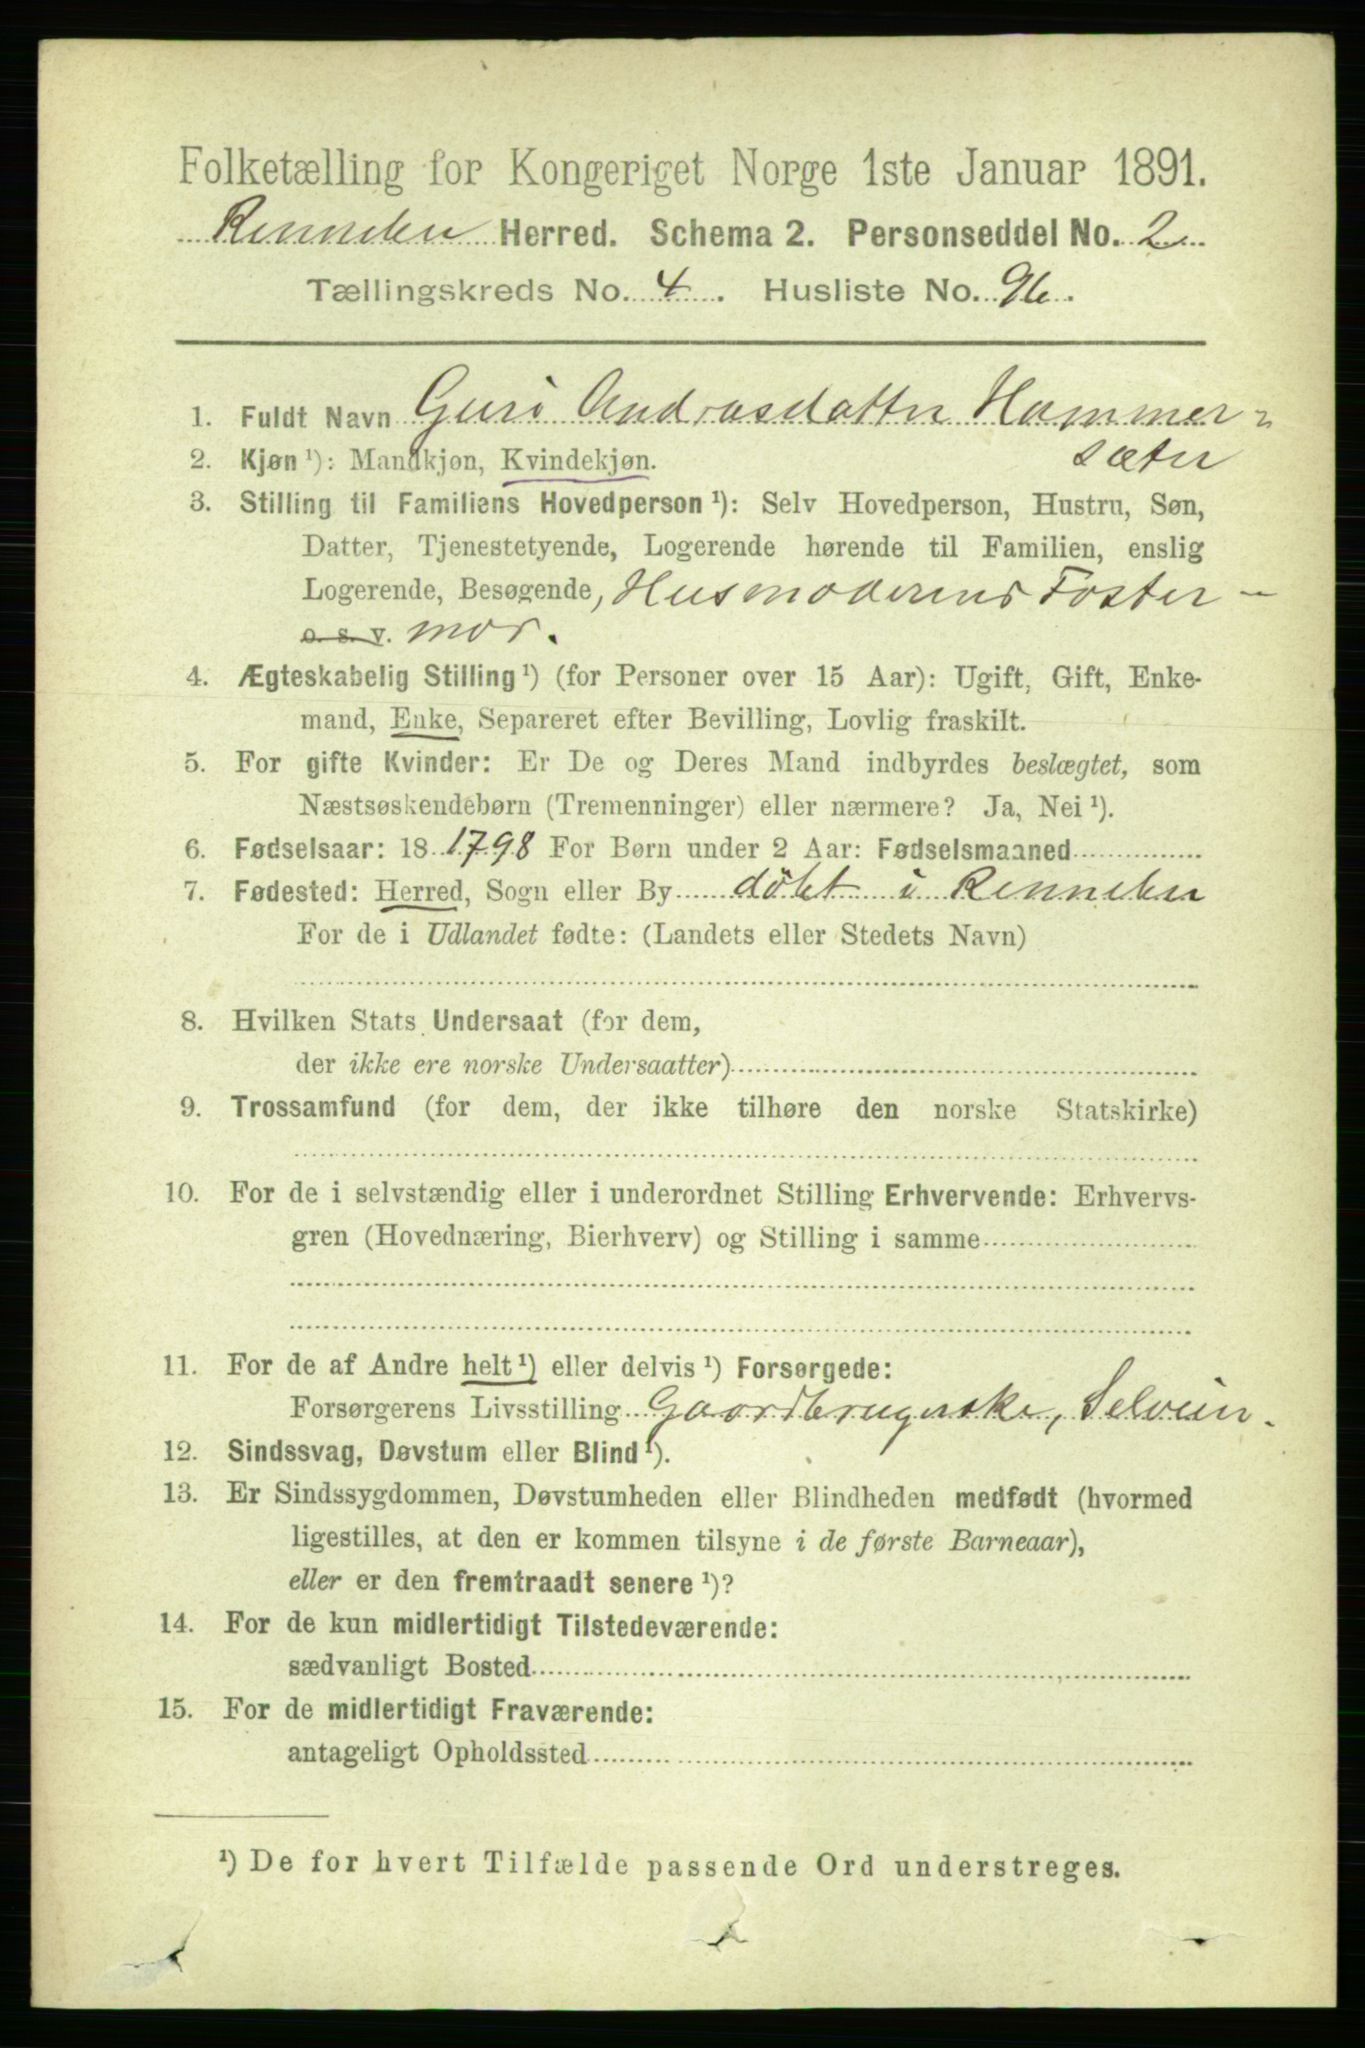 Folketælling for Kongeriget Norge 1ste Januar 1891.
Rennebu Herred. Schema 2. Personseddel No. 2
Tællingskreds No. 4. Husliste No. 96.
1. Fuldt Navn Guri Andrasdatter Hammer=
sæter
2. Kjøn ¹): Mandkjøn, Kvindekjøn.
3. Stilling til Familiens Hovedperson ¹): Selv Hovedperson, Hustru, Søn,
Datter, Tjenestetyende, Logerende hørende til Familien, enslig
Logerende, Besøgende, Husmoderens Foster-
o. s. v. mor.
4. Ægteskabelig Stilling ¹) (for Personer over 15 Aar): Ugift, Gift, Enke-
mand, Enke, Separeret efter Bevilling, Lovlig fraskilt.
5. For gifte Kvinder: Er De og Deres Mand indbyrdes beslægtet, som
Næstsøskendebørn (Tremenninger) eller nærmere? Ja, Nei ¹).
6. Fødselsaar: 18 1798 For Børn under 2 Aar: Fødselsmaaned
7. Fødested: Herred, Sogn eller By døbt i Rennebu
For de i Udlandet fødte: (Landets eller Stedets Navn)
8. Hvilken Stats Undersaat (for dem,
der ikke ere norske Undersaatter)
9. Trossamfund (for dem, der ikke tilhøre den norske Statskirke)
10. For de i selvstændig eller i underordnet Stilling Erhvervende: Erhvervs-
gren (Hovednæring, Bierhverv) og Stilling i samme
11. For de af Andre helt ¹) eller delvis ¹) Forsørgede:
Forsørgerens Livsstilling Gaardbrugerske, Selveier.
12. Sindssvag, Døvstum eller Blind ¹).
13. Er Sindssygdommen, Døvstumheden eller Blindheden medfødt (hvormed
ligestilles, at den er kommen tilsyne i de første Barneaar),
eller er den fremtraadt senere ¹)?
14. For de kun midlertidigt Tilstedeværende:
sædvanligt Bosted
15. For de midlertidigt Fraværende:
antageligt Opholdssted
¹) De for hvert Tilfælde passende Ord understreges.